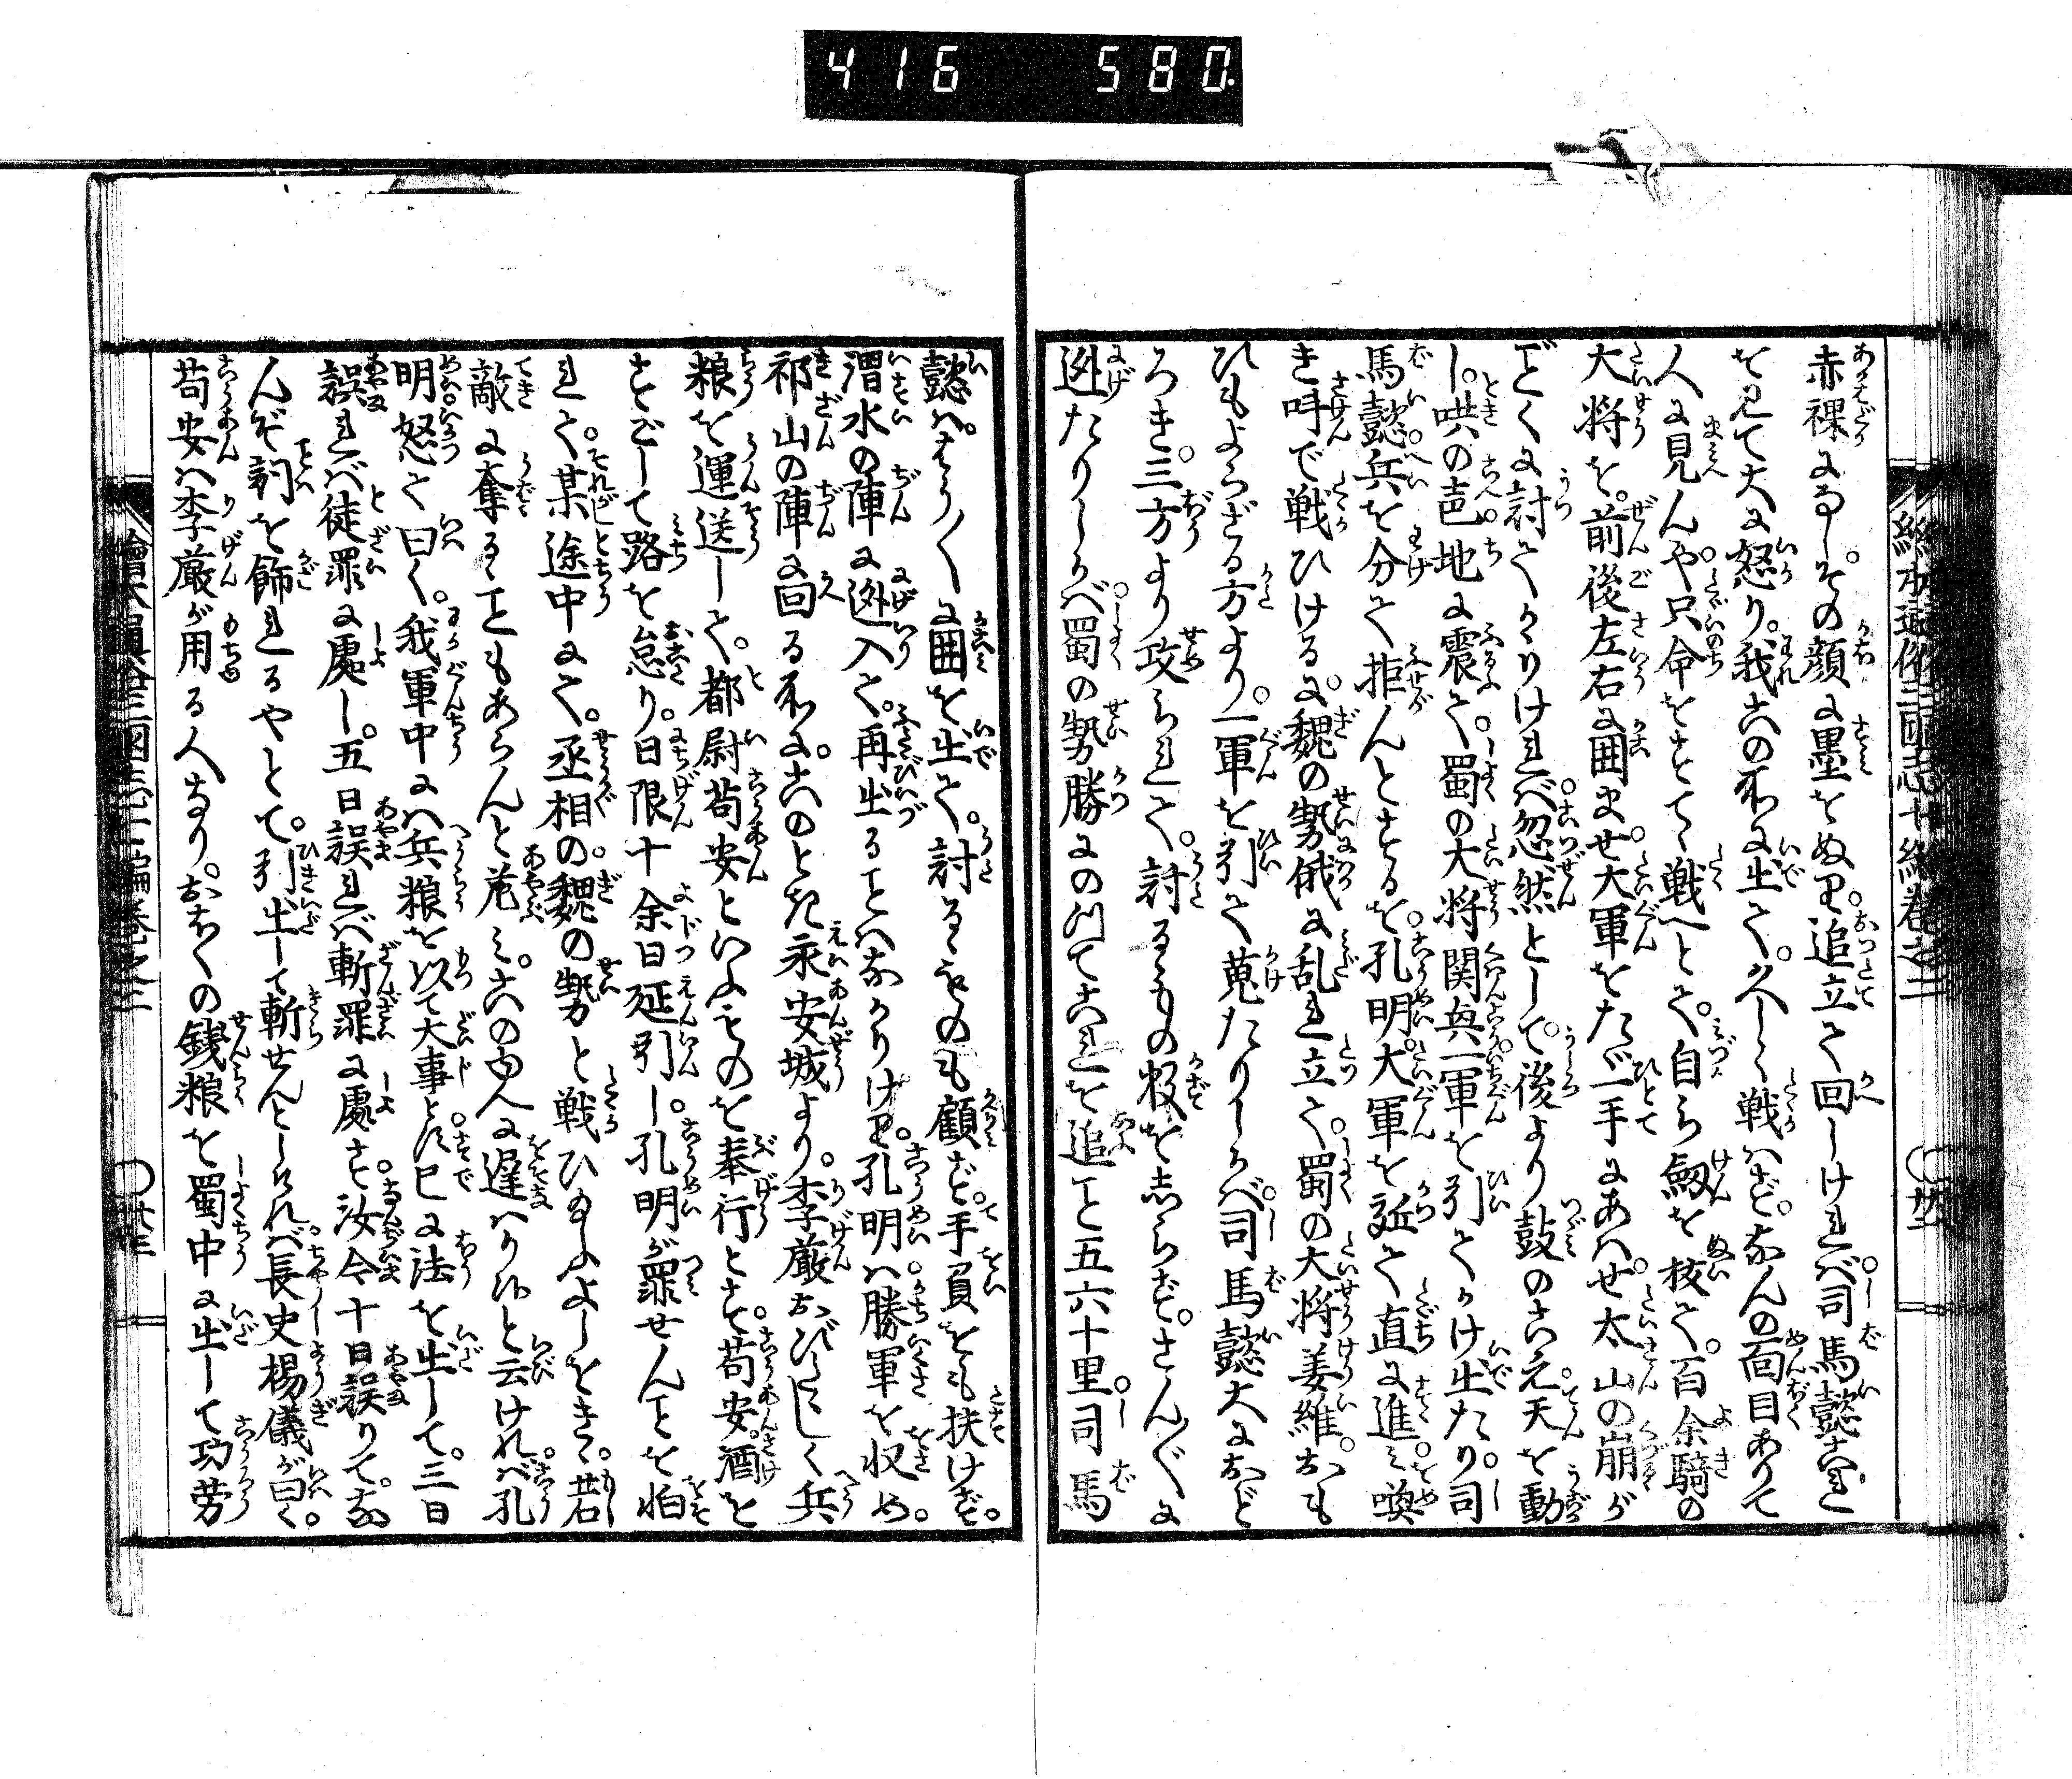 416 580
赤裸になし。その顔に墨をぬり。追立て回しければ。司馬懿これ
を見て大に怒り。我この不に出て。久しく戦はず。なんの面目ありて
人に見んや。只命をすてゝ戦へとて。自ら剱を抜て。百余騎の
大将を。前後左右に囲ませ。大軍をたゞ一手にあはせ。太山の崩が
どくに討てかゝりければ。忽然として。後より鼓のこえ。天を動
し。哄の声。地に震て。蜀の大将関興。一軍を引てかけ出たり。司
馬懿。兵を分て拒んとするを。孔明。大軍を近て直に進み。喚
き叫で戦ひけるに。魏の勢俄に乱れ立て。蜀の大将姜維。おも
ひもよらざる方より。一軍を引て蒐たりしかば。司馬懿大におど
ろき。三方より攻られて。討るゝもの数をしらず。さん〴〵に
迯たりしかば。蜀の勢勝にのつてこれを追こと五六十里。司馬
懿は。やう〳〵に囲を出て。討るゝものも顧ず。手負をも扶けず。
渭水の陣に迯入て。再出ることはなかりけり。孔明は。勝軍を収め。
祁山の陣に回る不に。このとき永安城より。李厳おびたゞしく兵
粮を運送して。都尉苟安といふものを奉行とす。苟安。酒を
すごして路を怠り。日限十余日延引し。孔明が罪せんことを怕
れて。某途中にて。丞相の。魏の勢と戦ひ玉ふよしをきゝ。若
敵に奪るゝこともあらんと危み。このゆへに遅はり候と云ければ。孔
明怒て曰く。我軍中には兵粮を以て大事とす。已に法を出して。三日
誤れば徒罪に処し。五日誤れば斬罪に処す。汝今十日誤りて。な
んぞ詞を飾れるやとて。引出して斬せんとしければ。長史楊儀が曰く。
苟安は李厳が用る人なり。おほくの銭粮を蜀中に出して功労